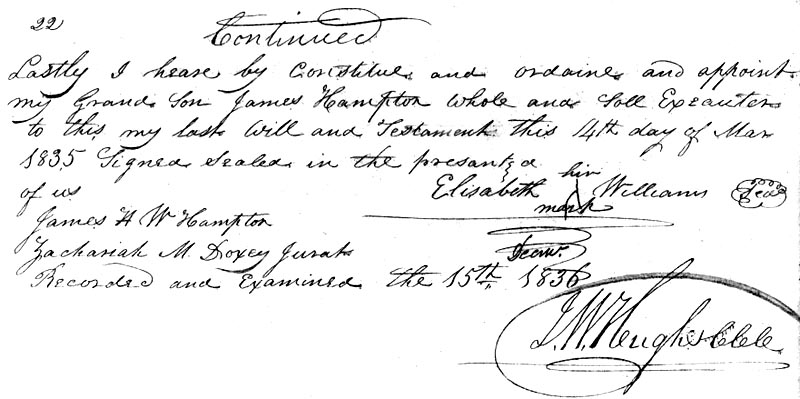 22
Continued
Lastly I heare by Constitue and ordaine and appoint
my Grand Son James Hampton Whole and Soll Exeauter
to this my last Will and Testament this 14th day of Mar
1835 Signed Sealed in the presant
of us
Elisabeth hir Williams Seal
mark
James H W Hampton
Zachariah M. Doxey Jurat
Recorded and Examined the 15th Decmr. 1836
J. W. Hughs